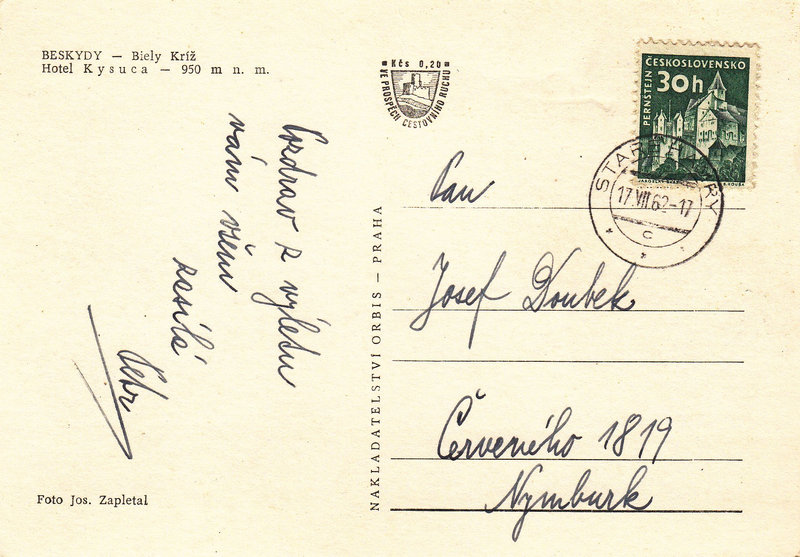 BESKYDY — Biely Kríž
Hotel Kysuca — 950 m n. m.
Kčs 0,20
VE PROSPĚCH CESTOVNÍHO RUCHU
PERNŠTEJN
ČESKOSLOVENSKO
30h
17.VII.62-17
C
Pozdrav z výletu
vám všem
zasílá
Petr
NAKLADATELSTVÍ ORBIS — PRAHA
Pan
Josef Doubek
Červeného 1819
Nymburk
Foto Jos. Zapletal